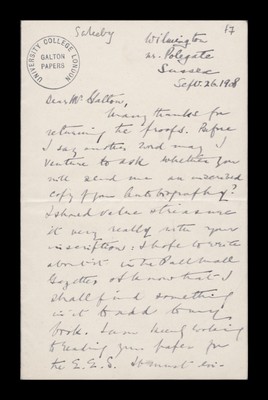 Saleeby
17
UNIVERSITY COLLEGE LONDON
GALTON
PAPERS
Wilmington
nr. Polegate
Sussex
Sept. 26. 1908
Dear Mr Galton,
Many thanks for
returning the proofs. Before
I say another word may I
venture to ask whether you
will send me an inscribed
copy of your Autobiography?
I should value & treasure
it very really with your
inscription: I hope to write
about it in the Pall Mall
Gazette, & I know that I
shall find something
in it to add to my
book. I am looking
to reading your paper for
the E. E. S. It must